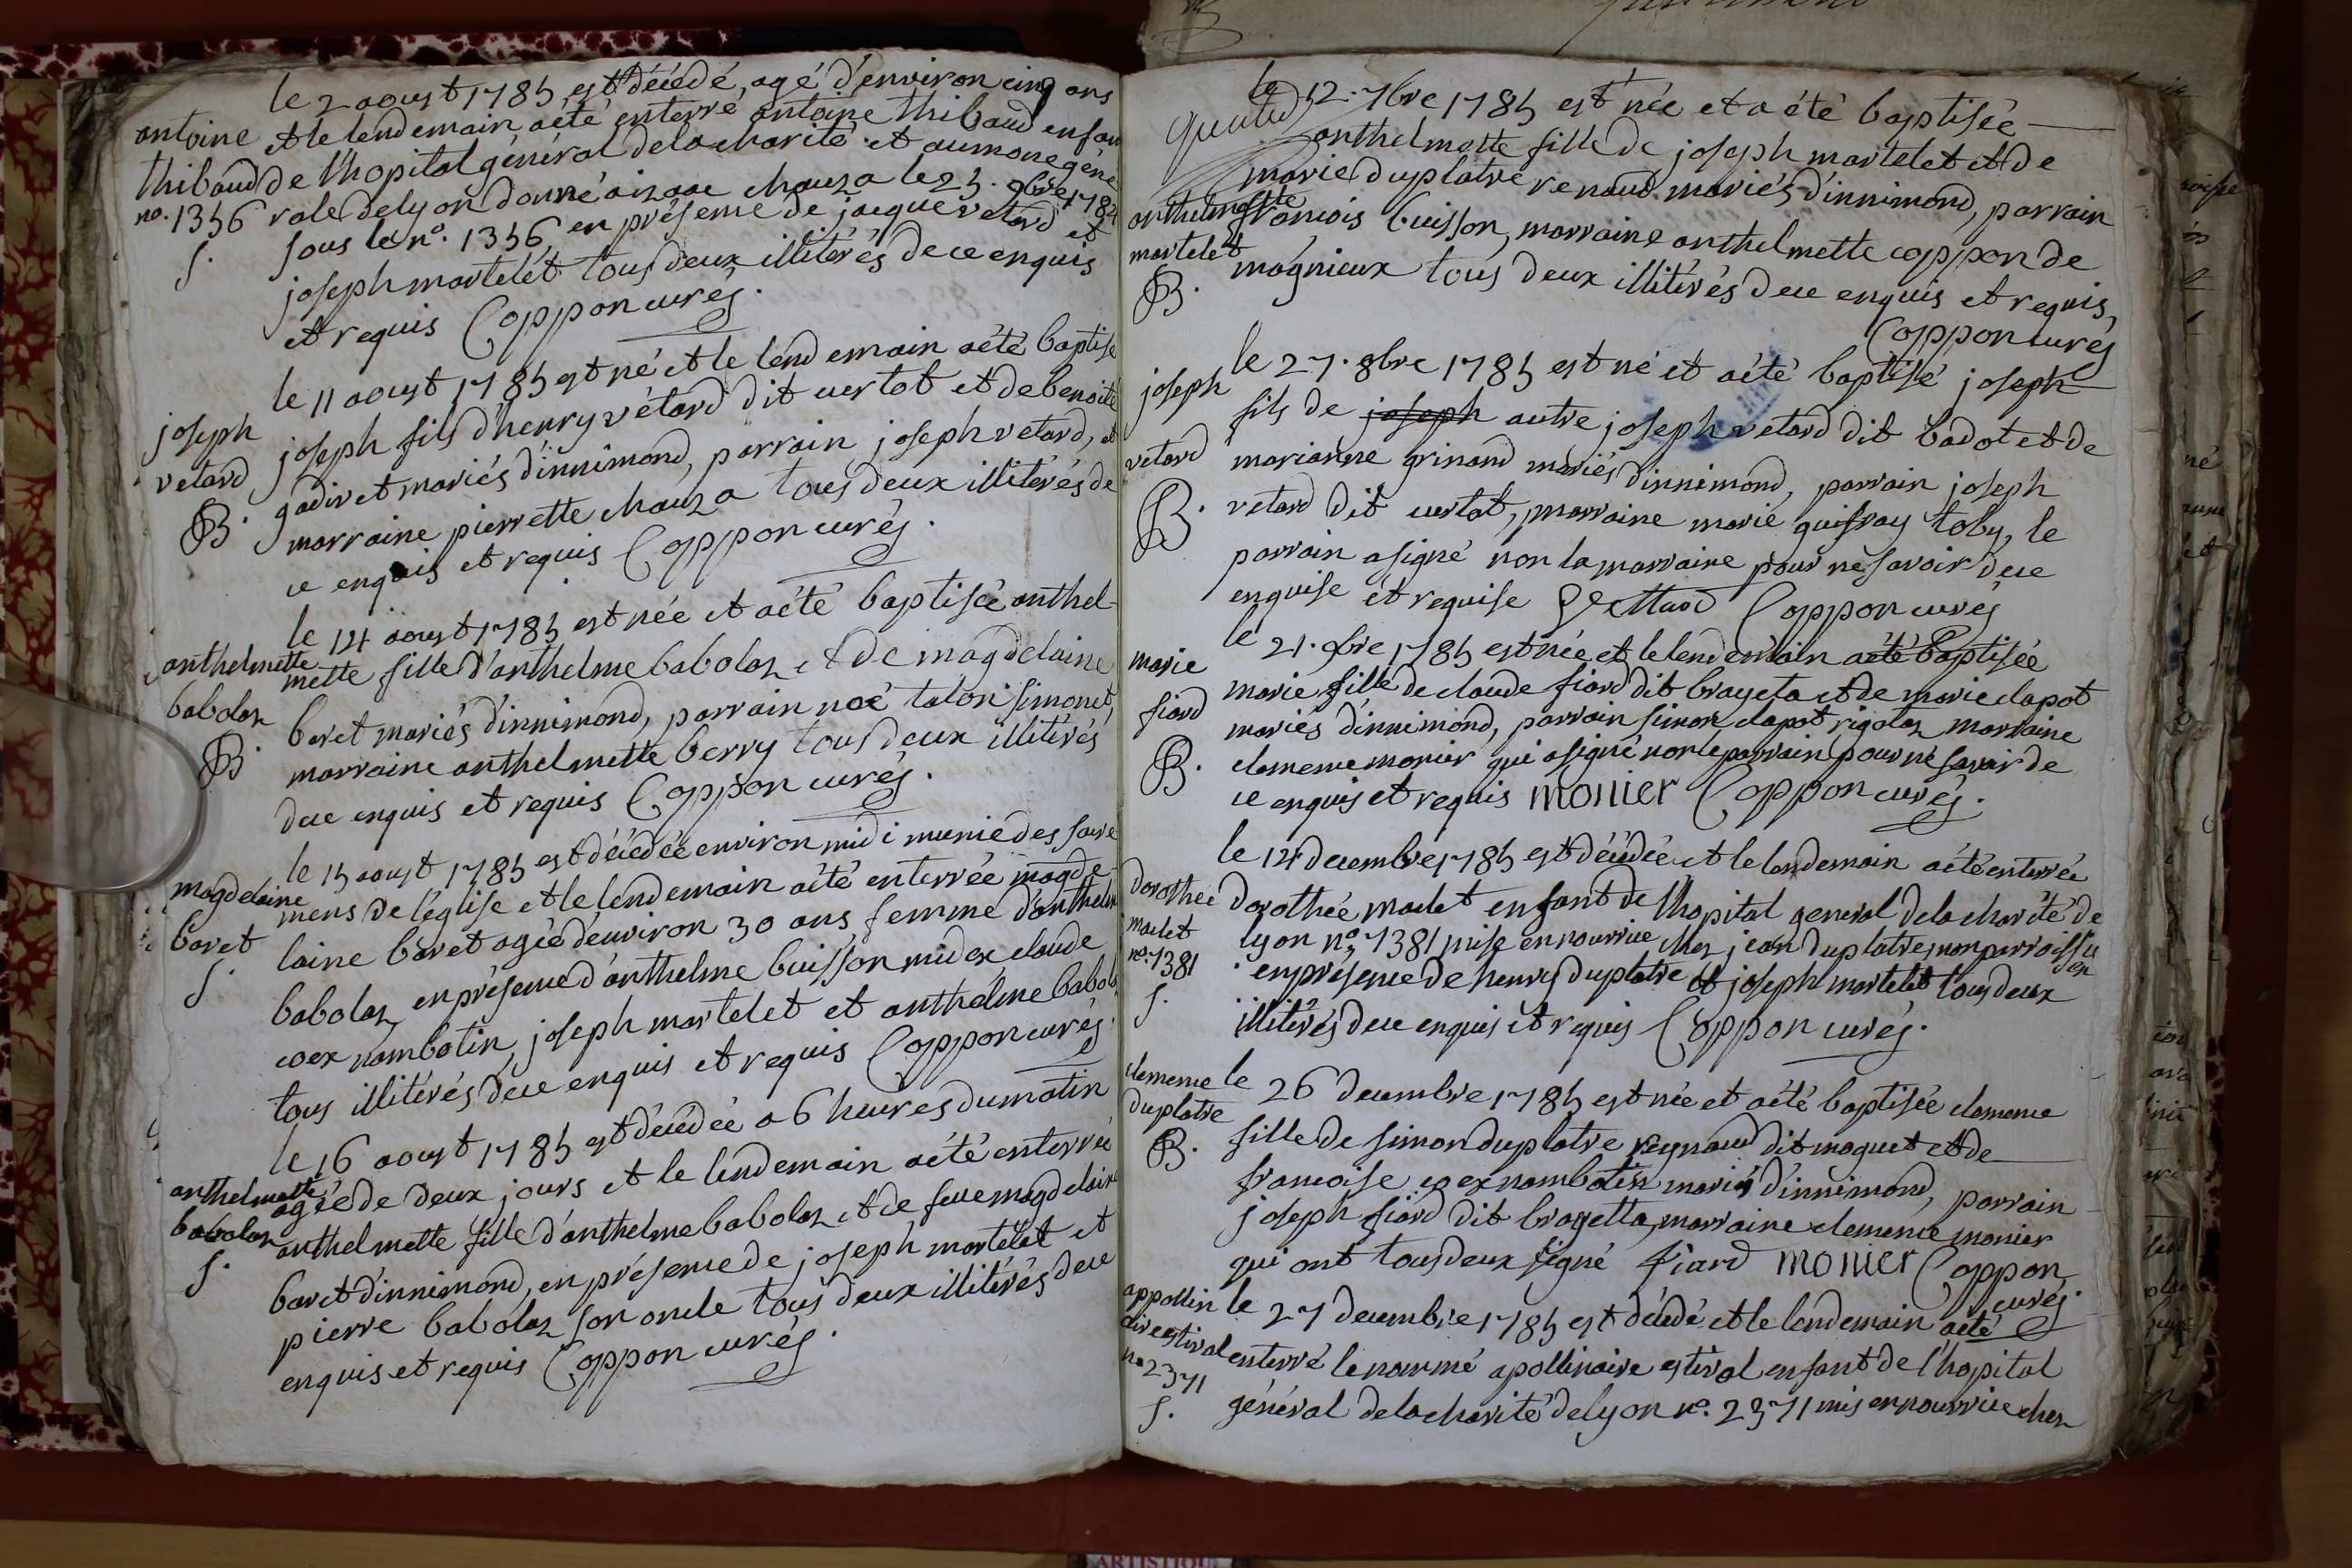 le 2 aoust 1785 est décédé, agé d'environ cinq ans
antoine et le lendemain a été enterré antoine thibaud enfan
thibaud de l'hopital général de la charité et aumone géné
no. 1356 rale de lyon donné a izaac chauza le 23. 9bre 1782
S. sous le no. 1356, en présence de jacque vetard et
joseph martelét tous deux illitérés de ce enquis
et requis Coppon curés.
le 11 aoust 1785 est né et le lendemain a été baptisé
joseph joseph fils d'henry vétard dit curtot et de benoite
vetard gadiret mariés d'innimond, parrain joseph vetard, et
B. marraine pierrette chauza tous deux illitérés de
ce enquis et requis Coppon curés.
le 14 aoust 1785 est née et a été baptisée anthel-
anthelmette mette fille d'anthelme babolaz et de magdelaine
babolaz baret mariés d'innimond, parrain noé talon simonet,
B. marraine anthelmette berry tous deux illitérés
de ce enquis et requis Coppon curés.
le 15 aoust 1785 est décédée environ midi munie des sacre
magdelaine mens de l'église et le lendemain a été enterrée magde-
baret laine baret agée d'environ 30 ans, femme d'anthelm
S. babolaz, en présence d'anthelme buisson midex claude
coex nambotin, joseph martelet et anthelme babolaz
tous illitérés de ce enquis et requis Coppon curés.
le 16 aoust 1785 est décédée a 6 heures du matin
anthelmette agée de deux jours et le lendemain a été enterrée
babolaz anthelmette fille d'anthelme babolaz et de feue magdelaine
S. baret d'innimond, en présence de joseph martelet et
pierre babolaz son oncle tous deux illitérés de ce
enquis et requis Coppon curés.
le 12. 7bre 1785 est née et a été baptisée
anthelmette fille de joseph martelet et de
marie duplatre renaud mariés d'innimond, parrain
anthelmette francois buisson, marraine anthelmette coppon de
martelet magnieux tous deux illitérés de ce enquis et requis,
B. Coppon curés
le 27. 8bre 1785 est né et a été baptisé joseph
joseph fils de joseph autre joseph vetard dit badot et de
vetard marianne grinand mariés d'innimond, parrain joseph
B. vetard dit curtot, marraine marie guifray toby, le
parrain a signé non la marraine pour ne savoir de ce
enquise et requise Vettard Coppon curés
le 21. 9bre 1785 est née et le lendemain a été baptisée
marie marie fille de claude fiard dit brageta et de marie clapot
fiard mariés d'innimond, parrain simon clapot rigolaz marraine
B. clemence monier qui a signé non le parrain pour ne savoir de
ce enquis et requis monier Coppon curés.
le 14 decembre 1785 est décédée et le lendemain a été enterrée
dorothée dorothée maclet enfant de l'hopital general de la charité de
maclet lyon no. 1381 mise en nourrice chez jean duplatre mon parroissi
no. 1381 en présence de henry duplatre et joseph martelet tous deux en
S. illitérés de ce enquis et requis Coppon curés.
clemence le 26 decembre 1785 est née et a été baptisée clemence
duplatre fille de simon duplatre reynaud dit maguet et de
B. francoise coex nambotin mariés d'innimond, parrain
joseph fiard dit bragetta, marraine clemence monier
qui ont tous deux signé fiard monier Coppon
curés.
appollin le 27 decembre 1785 est décédé et le lendemain a été
aire estival enterré le nommé apollinaire estival enfant de l'hopital
no 2371 général de la charité de lyon no. 2371 mis en nourrice chez
S.
ARTISTIQU